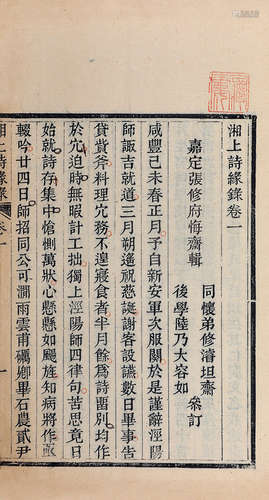 湘上詩緣錄卷一
嘉定張修府悔齋輯
同懷弟修濤坦齋
後學陸乃大容如
參訂
咸豐己未春正月予自新安軍次服闋於是謹辭涇陽
師諏吉就道三月朔遙祝慈誕謝客設讌數日畢事告
貸貲斧料理宂務不遑寢食者半月餘爲詩畱別均作
於宂迫時無暇計工拙獨上涇陽師四律句苦思竟日
始就詩存集中愴惻萬狀心懸懸如颺旌知病將作亟
輟吟廿四日師招同公可澗雨雲甫礪卿皋石農貳尹
湘上詩緣錄
卷一